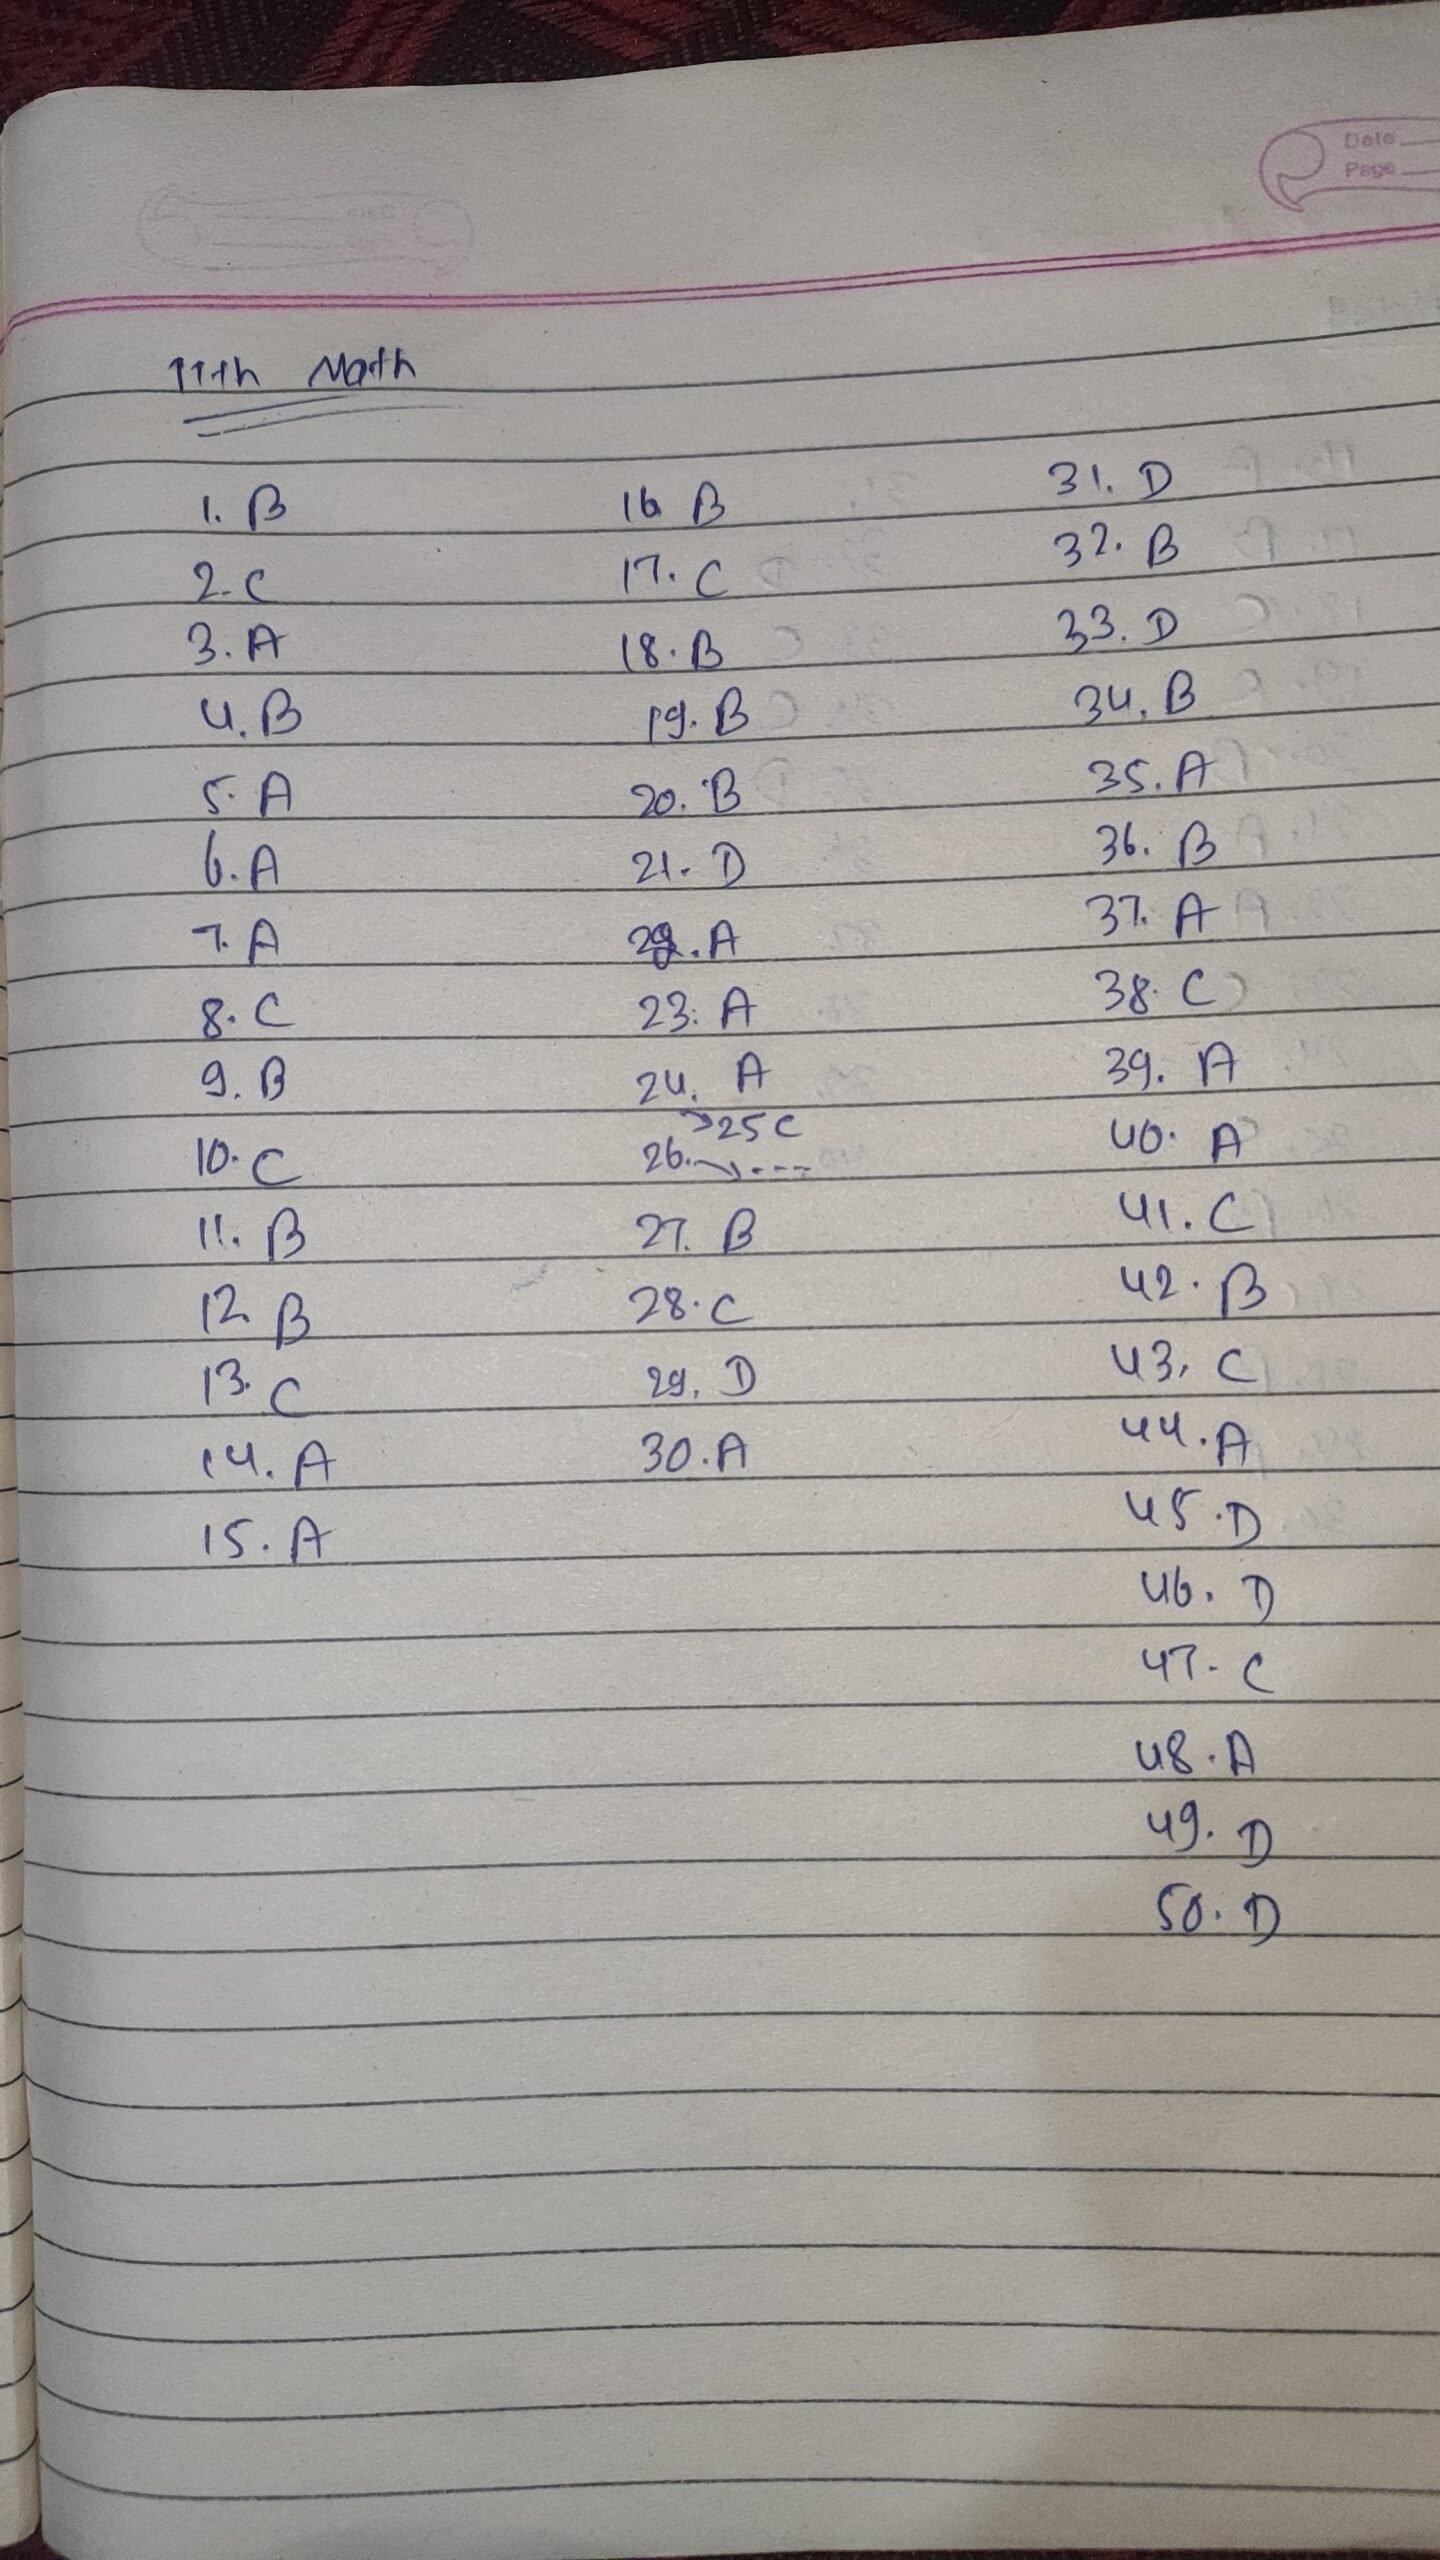 Date
Page
11th Math
1. B
2. C
3. A
4. B
5. A
6. A
7. A
8. C
9. B
10. C
11. B
12. B
13. C
14. A
15. A
16 B
17. C
18. B
19. B
20. B
21. D
22. A
23. A
24. A
→25 C
26. → ---
27. B
28. C
29. D
30. A
31. D
32. B
33. D
34. B
35. A
36. B
37. A
38. C
39. A
40. A
41. C
42. B
43. C
44. A
45. D
46. D
47. C
48. A
49. D
50. D